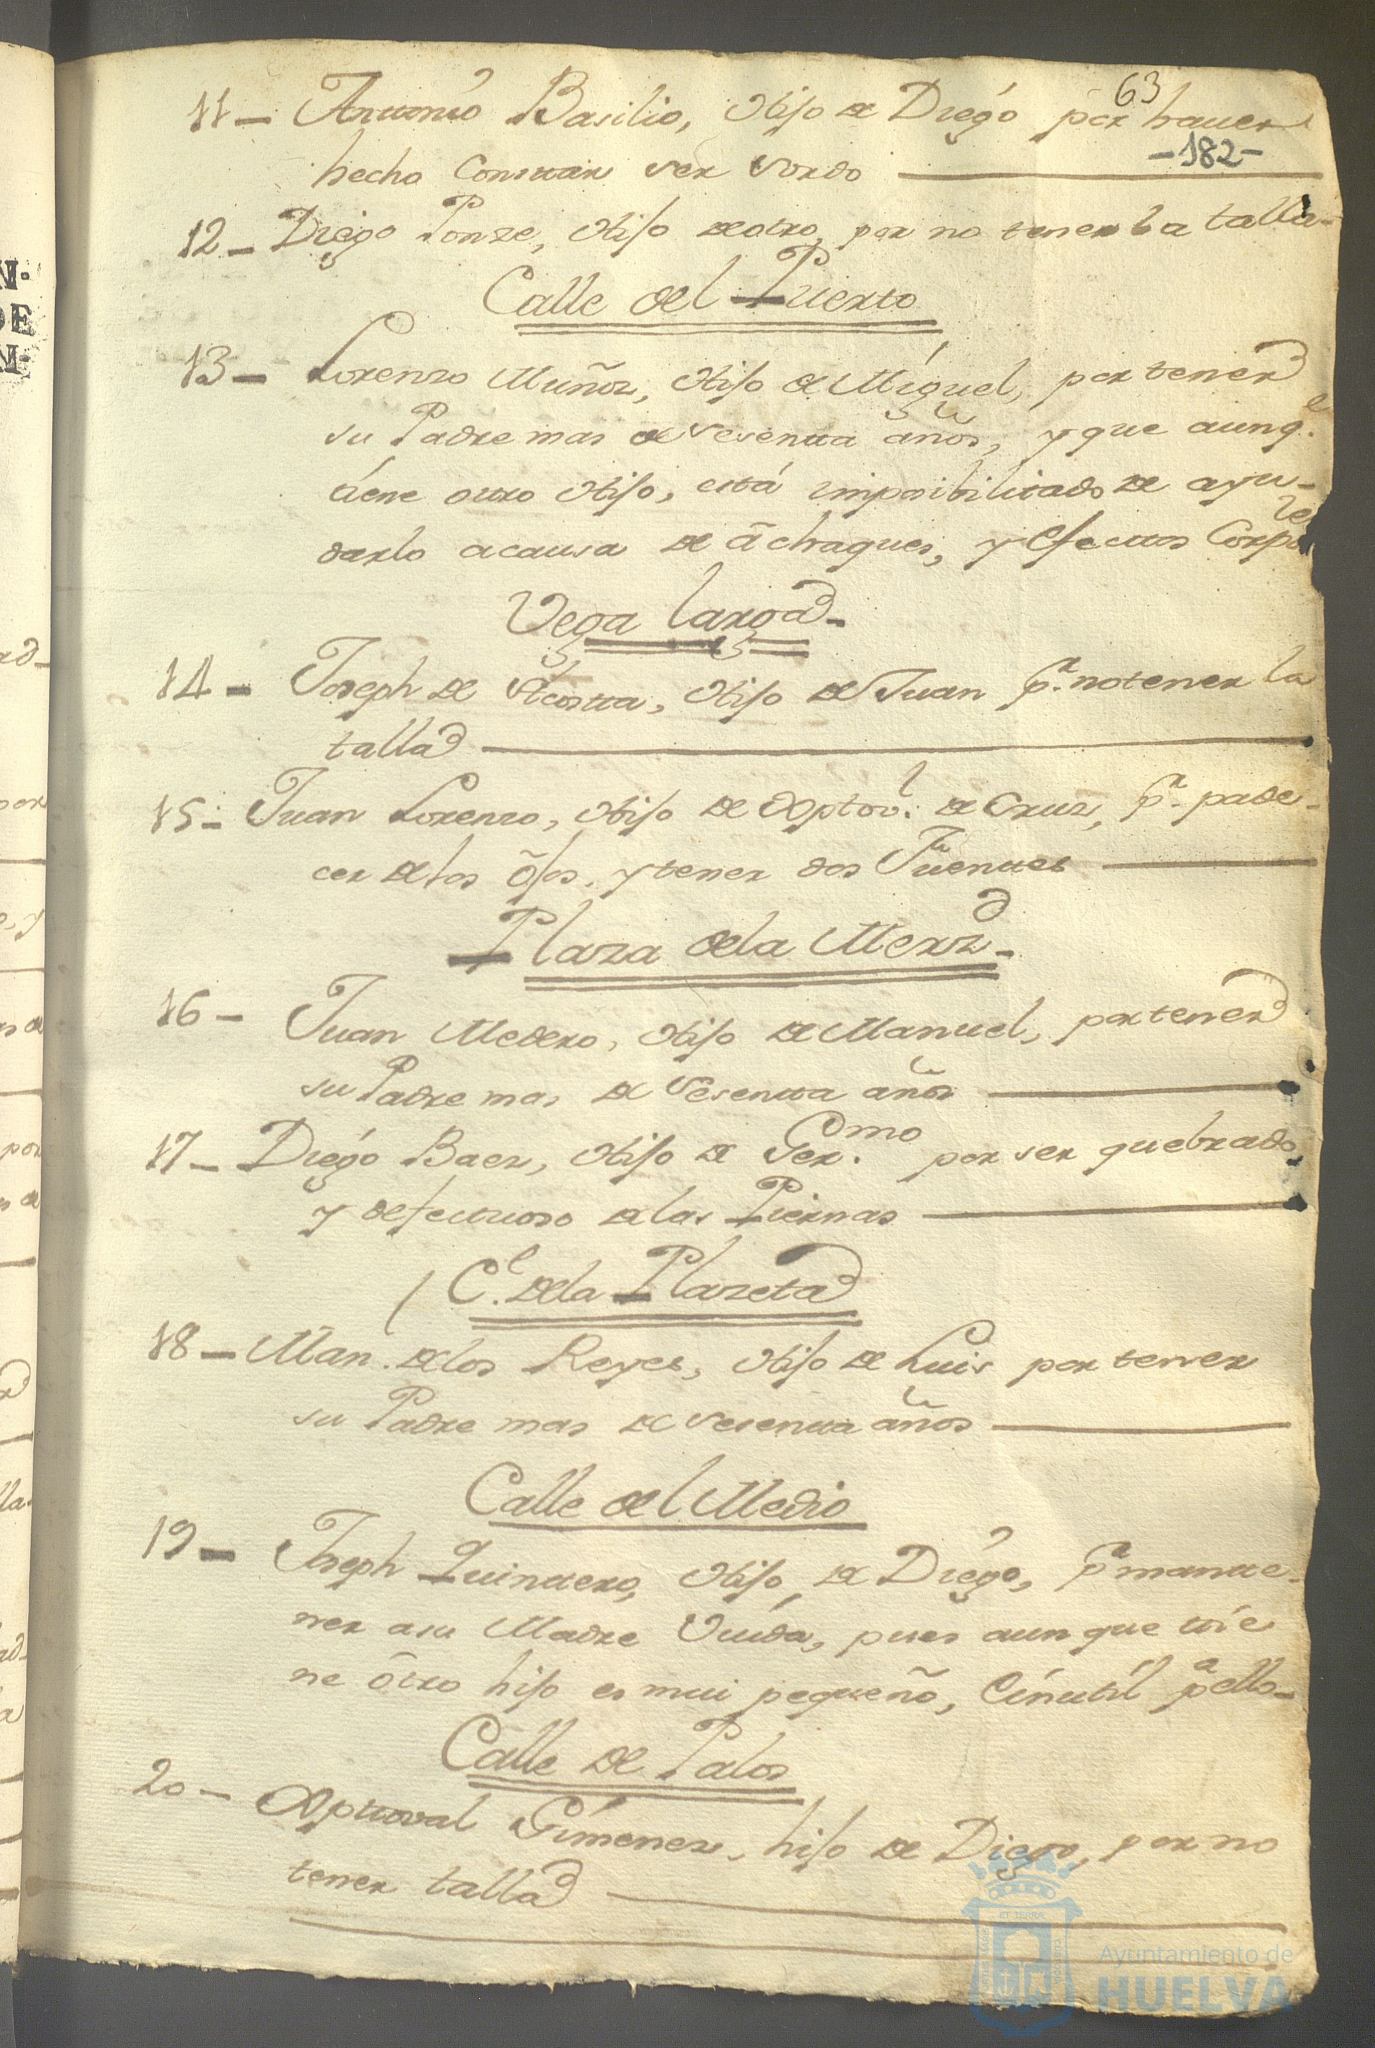 63
11 - Antonio Basilio, Hijo de Diego por haver
-182-
hecho Constar ser sordo
12 - Diego Ponze, Hijo de otro, por no tener la talla-
Calle del Puerto
13 - Lorenzo Muñoz, Hijo de Miguel, por tener
su Padre mas de sesenta años, y que aunq.e
tiene otro Hijo, está imposibilitado de ayu-
darlo acausa de achaques, y efectos Corp.les
Vega larga-
14 - Joseph de Acosta, Hijo de Juan p.r no tener la
talla
15 - Juan Lorenzo, Hijo de Xptov.l de Cruz, p.r pade-
cer de los ojos, y tener dos Fuentes
Plaza dela Merzd-
16 - Juan Medero, Hijo de Manuel, por tener
su Padre mas de sesenta años
17 - Diego Baez, Hijo de Ger.mo por ser quebrado,
y defectuoso de las Piernas
C.e dela Plazeta
18 - Man. delos Reyes, Hijo de Luis por tener
su Padre mas de sesenta años
Calle del Medio
19 - Joseph Quintero, Hijo de Diego, p.r mante-
ner asu Madre Viuda, pues aunque tie
ne otro hijo es mui pequeño, é inutil pa ello-
Calle de Palos
20 - Xptoval Gimenez, hijo de Diego, por no
tener talla
Ayuntamiento de
HUELVA